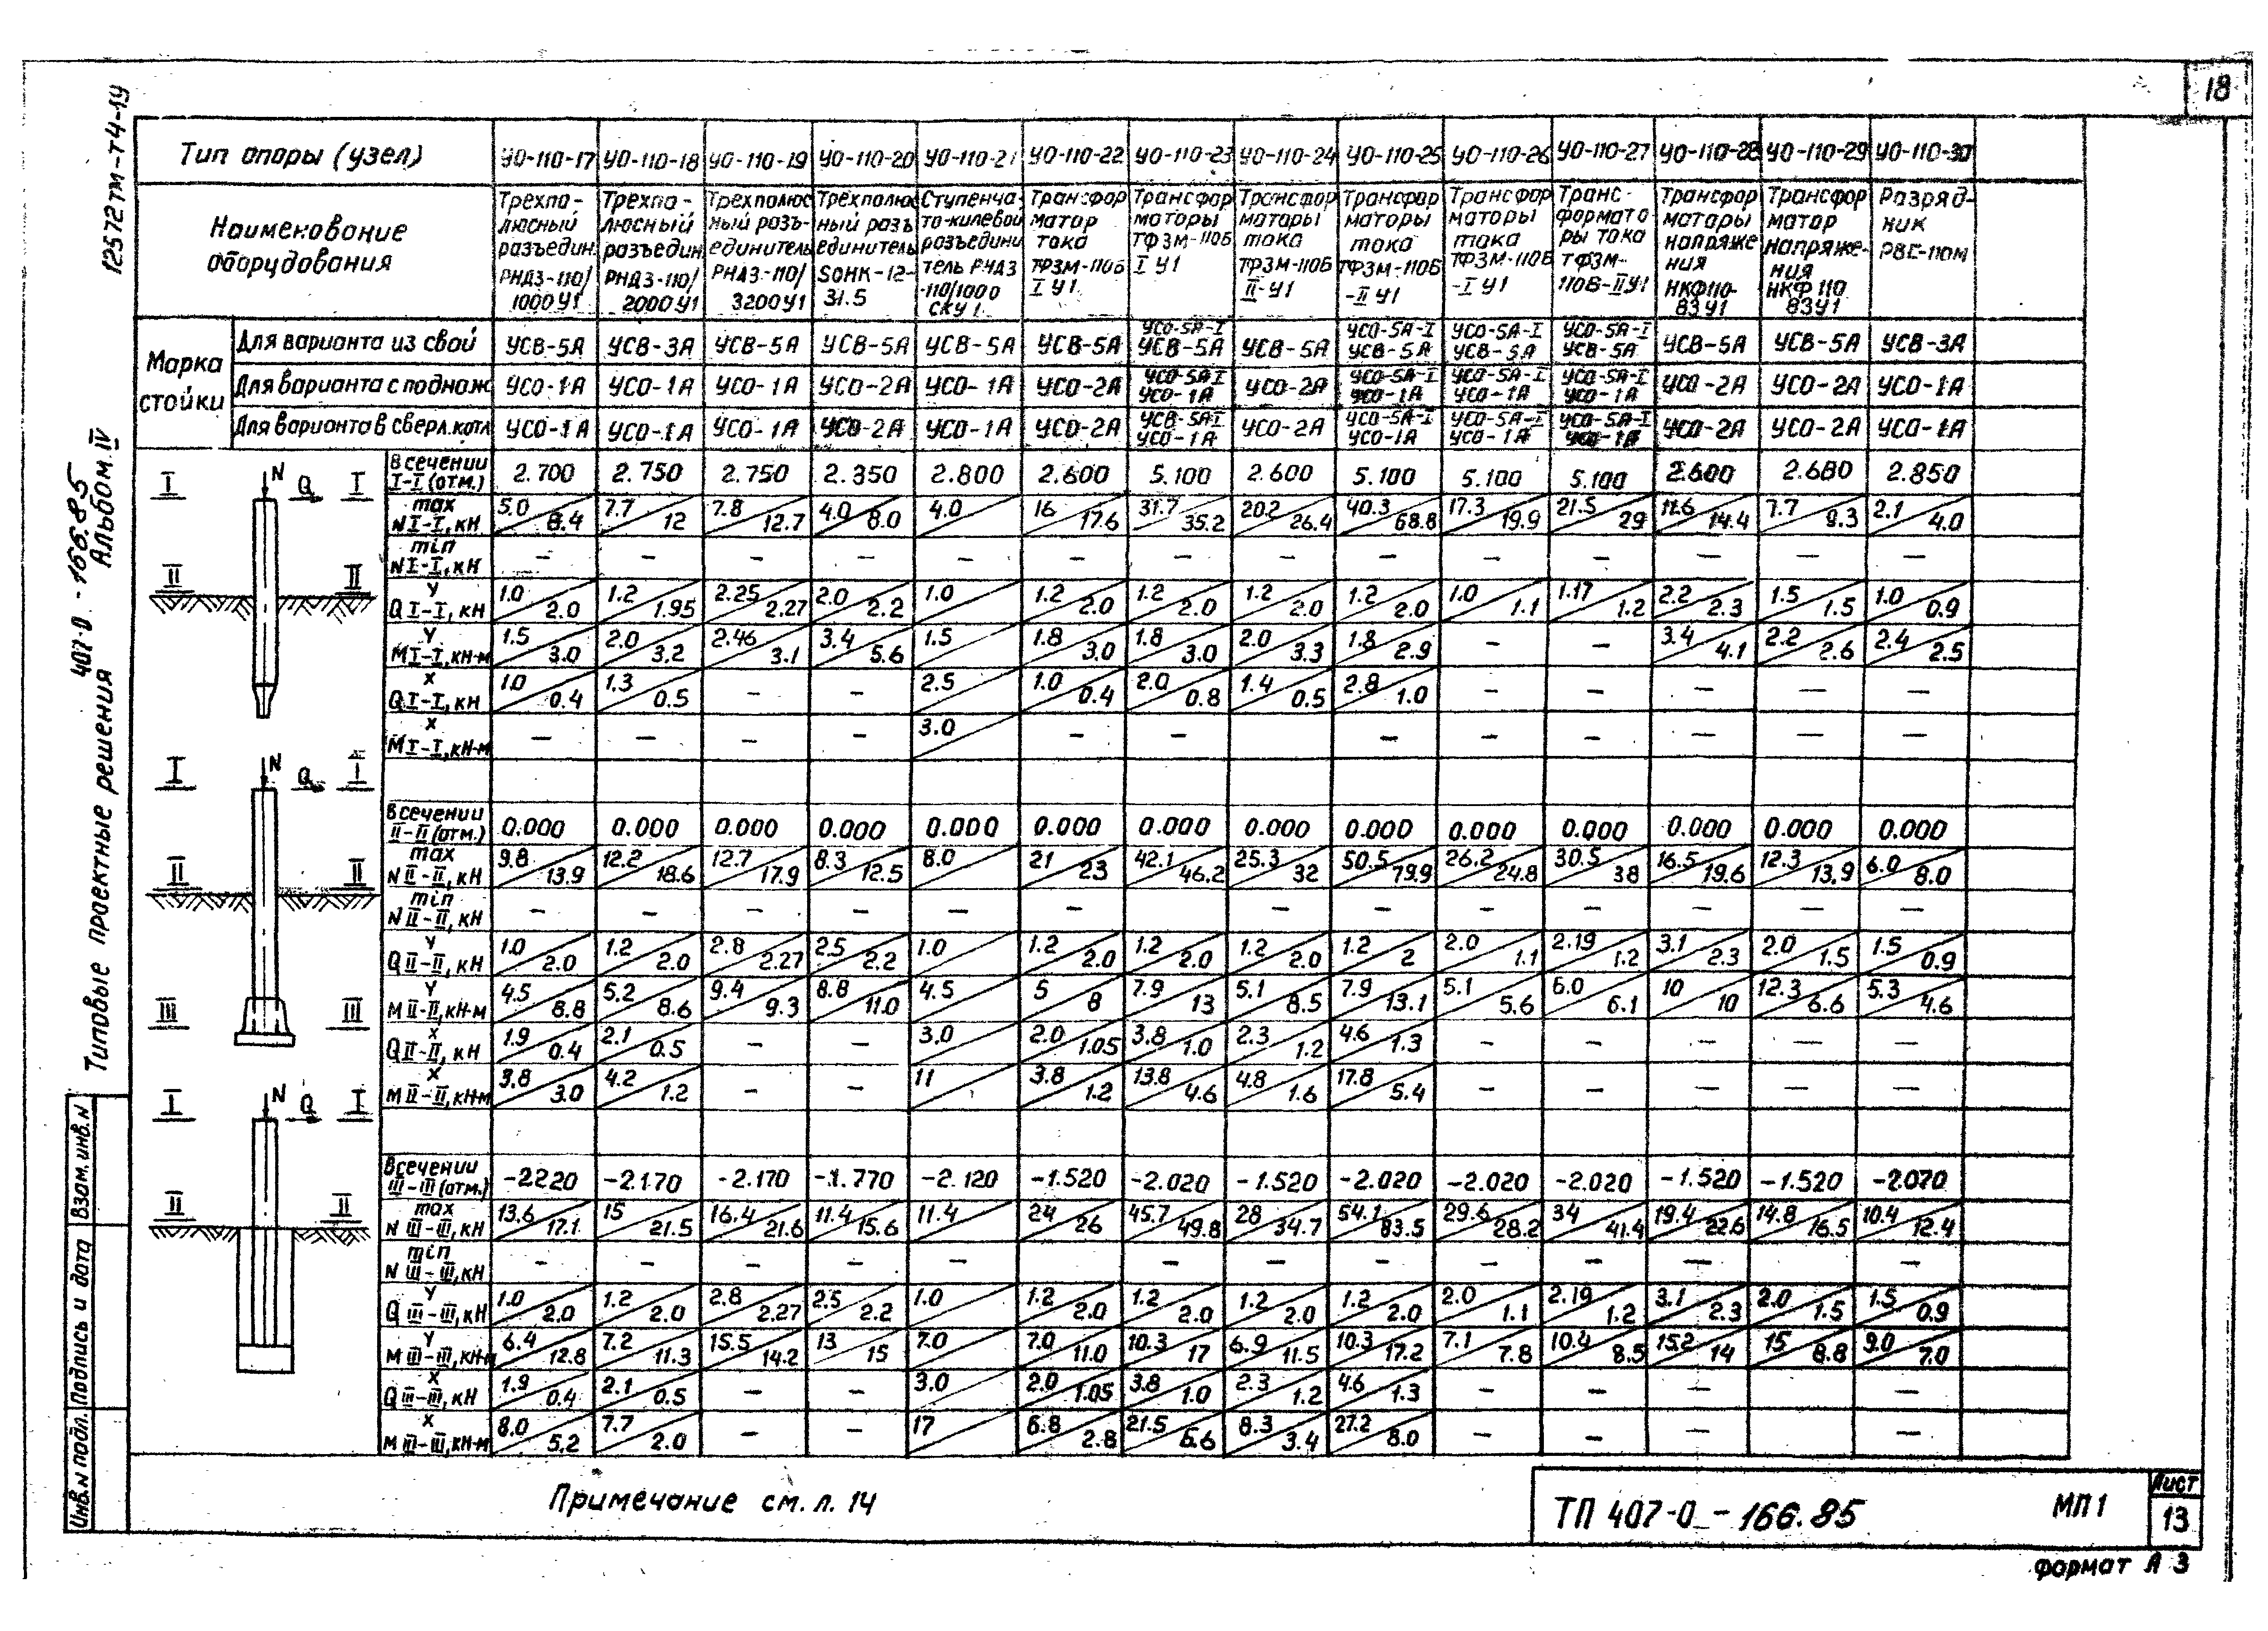 18
12572тм-т4-19
Типовые проектные решения 407-0-166.85 Альбом IV
Тип опоры (узел) УО-110-17 УО-110-18 УО-110-19 УО-110-20 УО-110-21 УО-110-22 УО-110-23 УО-110-24 УО-110-25 УО-110-26 УО-110-27 УО-110-28 УО-110-29 УО-110-30
Наименование оборудования
Трехпо-
люсный
разъедин.
РНДЗ-110/
1000У1
Трехпо-
люсный
разъедин.
РНДЗ-110/
2000У1
Трехполюс
ный разъ-
единитель
РНДЗ-110/
3200У1
Трехполюс
ный разъ
единитель
SОНК-12-
31.5
Ступенча-
то-килевой
разъедини
тель РНДЗ
-110/1000
СКУ1
Трансфор
матор
тока
ТФЗМ-110Б
I У1
Трансфор
маторы
ТФЗМ-110Б
I У1
Трансфор
маторы
тока
ТФЗМ-110Б
II-У1
Трансфор
маторы
тока
ТФЗМ-110Б
-II У1
Трансфор
маторы
тока
ТФЗМ-110Б
-I У1
Транс-
формато
ры тока
ТФЗМ-
110В-IIУ1
Трансфор
маторы
напряже
ния
НКФ110-
83У1
Трансфор
матор
напряже-
ния
НКФ 110
83У1
Разряд-
ник
РВС-110М
Марка стойки
Для варианта из свай УСВ-5А УСВ-3А УСВ-5А УСВ-5А УСВ-5А УСВ-5А УСО-5А-I УСВ-5А УСВ-5А УСО-5А-I УСВ-5А УСО-5А-I УСВ-5А УСО-5А-I УСВ-5А УСВ-5А УСВ-5А УСВ-3А
Для варианта с поднож УСО-1А УСО-1А УСО-1А УСО-2А УСО-1А УСО-2А УСО-5АI УСО-1А УСО-2А УСО-5А-I УСО-1А УСО-5А-I УСО-1А УСО-5А-I УСО-1А УСО-2А УСО-2А УСО-1А
Для варианта в сверл.котл УСО-1А УСО-1А УСО-1А УСО-2А УСО-1А УСО-2А УСВ-5АI УСО-1А УСО-2А УСО-5А-I УСО-1А УСО-5А-I УСО-1А УСО-5А-I УСО-1А УСО-2А УСО-2А УСО-1А
В сечении I-I (отм.) 2.700 2.750 2.750 2.350 2.800 2.600 5.100 2.600 5.100 5.100 5.100 2.600 2.680 2.850
max N I-I, кН 5.0/8.4 7.7/12 7.8/12.7 4.0/8.0 4.0 16/17.6 31.7/35.2 20.2/26.4 40.3/68.8 17.3/19.9 21.5/29 11.6/14.4 7.7/9.3 2.1/4.0
min N I-I, кН – – – – – – – – – – – – – –
У Q I-I, кН 1.0/2.0 1.2/1.95 2.25/2.27 2.0/2.2 1.0 1.2/2.0 1.2/2.0 1.2/2.0 1.2/2.0 1.0/1.1 1.17/1.2 2.2/2.3 1.5/1.5 1.0/0.9
У М I-I, кН-м 1.5/3.0 2.0/3.2 2.46/3.1 3.4/5.6 1.5 1.8/3.0 1.8/3.0 2.0/3.3 1.8/2.9 – – 3.4/4.1 2.2/2.6 2.4/2.5
Х Q I-I, кН 1.0/0.4 1.3/0.5 – – 2.5 1.0/0.4 2.0/0.8 1.4/0.5 2.8/1.0 – – – – –
Х М I-I, кН-м – – – – 3.0 – – – – – – – –
В сечении II-II (отм.) 0.000 0.000 0.000 0.000 0.000 0.000 0.000 0.000 0.000 0.000 0.000 0.000 0.000 0.000
max N II-II, кН 9.8/13.9 12.2/18.6 12.7/17.9 8.3/12.5 8.0 21/23 42.1/46.2 25.3/32 50.5/79.9 26.2/24.8 30.5/38 16.5/19.6 12.3/13.9 6.0/8.0
min N II-II, кН – – – – – – – – – – – – –
У Q II-II, кН 1.0/2.0 1.2/2.0 2.8/2.27 2.5/2.2 1.0 1.2/2.0 1.2/2.0 1.2/2.0 1.2/2 2.0/1.1 2.19/1.2 3.1/2.3 2.0/1.5 1.5/0.9
У М II-II, кН-м 4.5/8.8 5.2/8.6 9.4/9.3 8.8/11.0 4.5 5/8 7.9/13 5.1/8.5 7.9/13.1 5.1/5.6 6.0/6.1 10/10 12.3/6.6 5.3/4.6
Х Q II-II, кН 1.9/0.4 2.1/0.5 – – 3.0 2.0/1.05 3.8/1.0 2.3/1.2 4.6/1.3 – – – – –
Х М II-II, кН-м 3.8/3.0 4.2/1.2 – – 11 3.8/1.2 13.8/4.6 4.8/1.6 17.8/5.4 – – – – –
В сечении III-III (отм.) -2.220 -2.170 -2.170 -1.770 -2.120 -1.520 -2.020 -1.520 -2.020 -2.020 -2.020 -1.520 -1.520 -2.070
max N III-III, кН 13.6/17.1 15/21.5 16.4/21.6 11.4/15.6 11.4 24/26 45.7/49.8 28/34.7 54.1/83.5 29.6/28.2 34/41.4 19.4/22.6 14.8/16.5 10.4/12.4
min N III-III, кН – – – – – – – – – – – – – –
У Q III-III, кН 1.0/2.0 1.2/2.0 2.8/2.27 2.5/2.2 1.0 1.2/2.0 1.2/2.0 1.2/2.0 1.2/2.0 2.0/1.1 2.19/1.2 3.1/2.3 2.0/1.5 1.5/0.9
У М III-III, кН-м 6.4/12.8 7.2/11.3 15.5/14.2 13/15 7.0 7.0/11.0 10.3/17 6.9/11.5 10.3/17.2 7.1/7.8 10.4/8.5 15.2/14 15/8.8 9.0/7.0
Х Q III-III, кН 1.9/0.4 2.1/0.5 – – 3.0 2.0/1.05 3.8/1.0 2.3/1.2 4.6/1.3 – – – – –
Х М III-III, кН-м 8.0/5.2 7.7/2.0 – – 17 6.8/2.8 21.5/6.6 8.3/3.4 27.2/8.0 – – – –
I N Q I
II II
I N Q I
II II
III III
I N Q I
II II
Взам. инв. N
Подпись и дата
Инв. N подл.
Примечание см. л. 14
ТП 407-0-166.85 МП1
Лист
13
формат А3